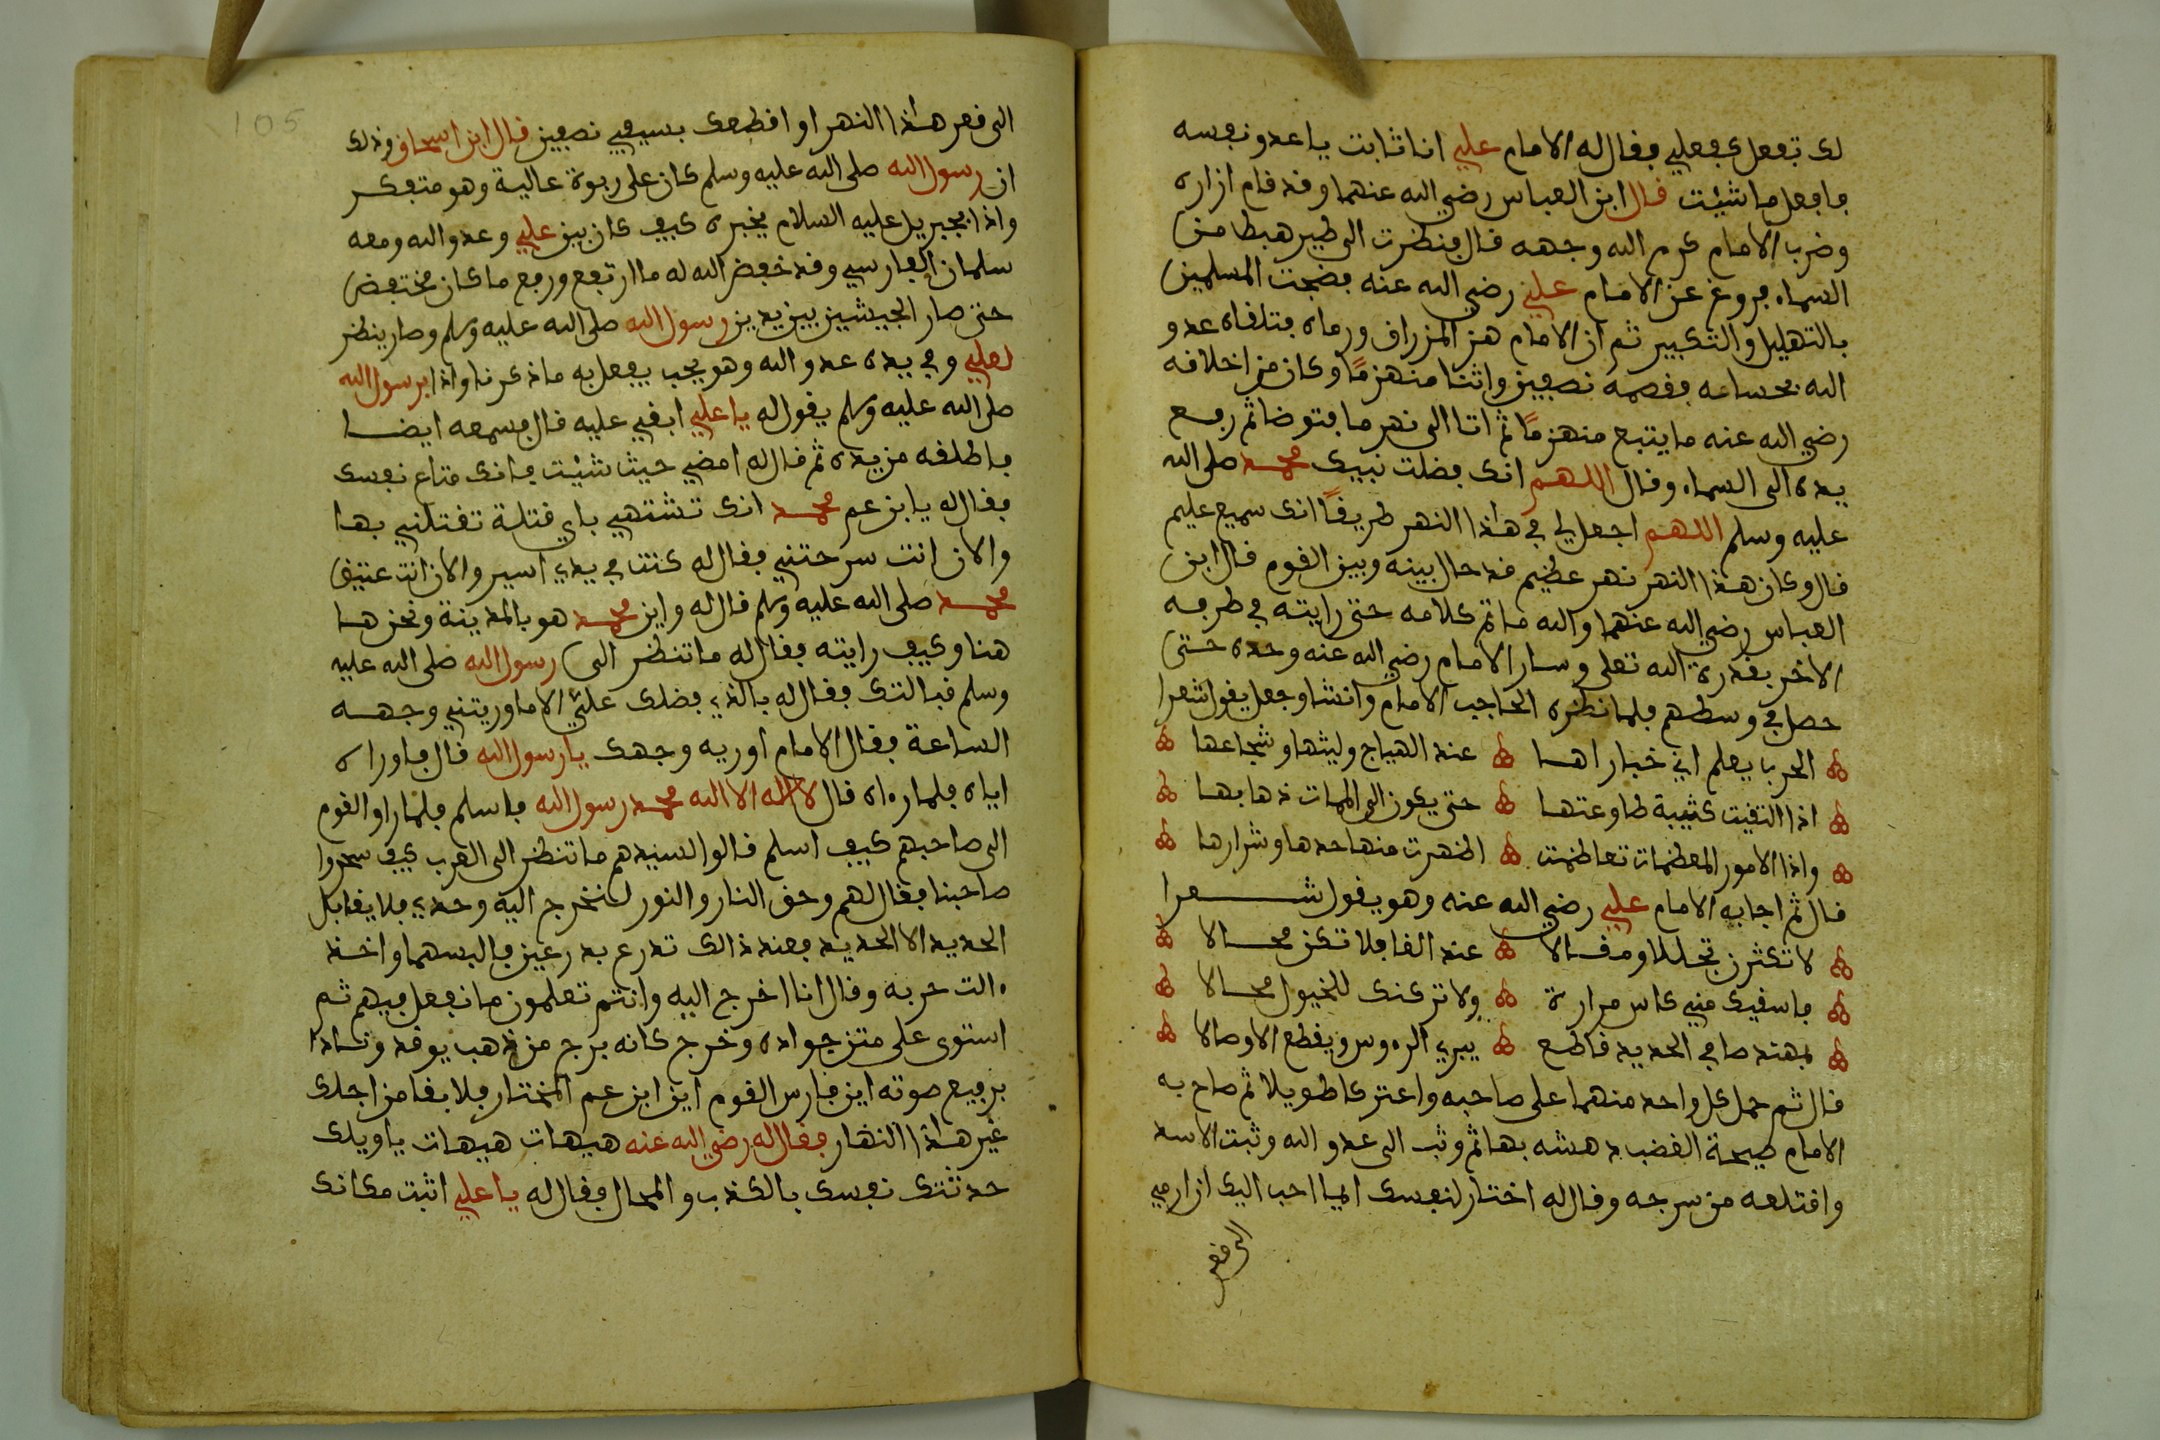 لك تفعل كفعلي فقال له الامام علي انا ثابت يا عدو نفسه
فافعل ما شئت قال ابن العباس رضي الله عنهما وقد قام ازاره
وضرب الامام كرم الله وجهه قال فنظرت الى طير هبط من
السماء فروغ عن الامام علي رضي الله عنه فضجت المسلمين
بالتهليل والتكبير ثم ان الامام هز المزراق ورماه فتلقاه عدو
الله بحسامه فقصمه نصفين واثنا منهزمًا وكان من اخلاقه
رضي الله عنه ما يتبع منهزمًا ثم اتا الى نهر ما فتوضا ثم رفع
يده الى السماء وقال اللهم انك فضلت نبيك محمد صلى الله
عليه وسلم اللهم اجعل لي في هاذا النهر طريقًا انك سميع عليم
قال وكان هذا النهر نهر عظيم قد حال بينه وبين القوم قال ابن
العباس رضي الله عنهما والله ما تم كلامه حتى رايته في طرفه
الاخر بقدرة الله تعلى وسار الامام رضي الله عنه وحده حتى
حصل في وسطهم فلما نظره الحاجب الامام وانشا وجعل يقول شعرا
الحرب يعلم اني خبارا اها عند الهياج وليثها وشجاعها
اذا التقيت كثيبة طاوعتها حتى يكون الى الممات ذهابها
واذا الامور المعظمات تعاظمت اظهرت منها حدها وشرارها
قال ثم اجابه الامام علي رضي الله عنه وهو يقول شعرا
لا تكثرن تحللا ومقالا عند الفا فلا تكن محالا
فاسقيك مني كاس مرارة ولا تركنك للخيول محالا
بمهند صافي الحديد قاطع يبري الرءوس ويقطع الاوصالا
قال ثم حمل كل واحد منهما على صاحبه واعتركا طويلا ثم صاح به
الامام صيحة الغضب دهشه بها ثم وثب الى عدو الله وثبت الاسد
واقتلعه من سرجه وقال له اختار لنفسك ايما احب اليك ان ارميك
الى قعر
105
الى قعر هاذا النهر او اقطعك بسيفي نصفين قال ابن اسحاق وذلك
ان رسول الله صلى الله عليه وسلم كان على ربوة عالية وهو متفكر
واذا بجبريل عليه السلام يخبره كيف كان بين علي وعدو الله ومعه
سلمان الفارسي وقد خفض الله له ما ارتفع ورفع ما كان مختفض
حتى صار الجيشين بين يدين رسول الله صلى الله عليه وسلم وصار ينظر
لعلي وفي يده عدو الله وهو يحب يفعل به ما ذكرنا واذا برسول الله
صلى الله عليه وسلم يقول له يا علي ابقي عليه قال فسمعه ايضا
فاطلقه من يده ثم قال له امضي حيث شئت فانك متاع نفسك
فقال له يا بن عم محمد انك تشتهي باي قتلة تقتلني بها
والان انت سرحتني فقال له كنت في يدي اسير والان انت عتيق
محمد صلى الله عليه وسلم قال له واين محمد هو بالمدينة ونحن ها
هنا وكيف رايته فقال له ما تنظر الى رسول الله صلى الله عليه
وسلم قبالتك فقال له بالذي فضلك عليّ الا ما وريتني وجهه
الساعة فقال الامام اوريه وجهك يا رسول الله قال فاوراه
اياه فلما رءاه قال لا اله الا الله محمد رسول الله فاسلم فلما راو القوم
الى صاحبهم كيف اسلم قالوا لسيدهم ما تنظر الى العرب كيف سحروا
صاحبنا فقال لهم وحق النار والنور لنخرج اليه وحدي فلا يقابل
الحديد الا الحديد فعند ذالك تدرع بدرعين فالبسهما واخذ
ءالت حربه وقال انا اخرج اليه وانتم تعلمون ما نفعل فيهم ثم
استوى على متن جواده وخرج كانه برج من ذهب يوقد ونادا
برفيع صوته اين فارس القوم اين ابن عم المختار فلا بقا من اجلك
غير هاذا النهار فقال له رضي الله عنه هيهات هيهات يا ويلك
حدثتك نفسك بالكذب والمحال فقال له يا علي اثبت مكانك